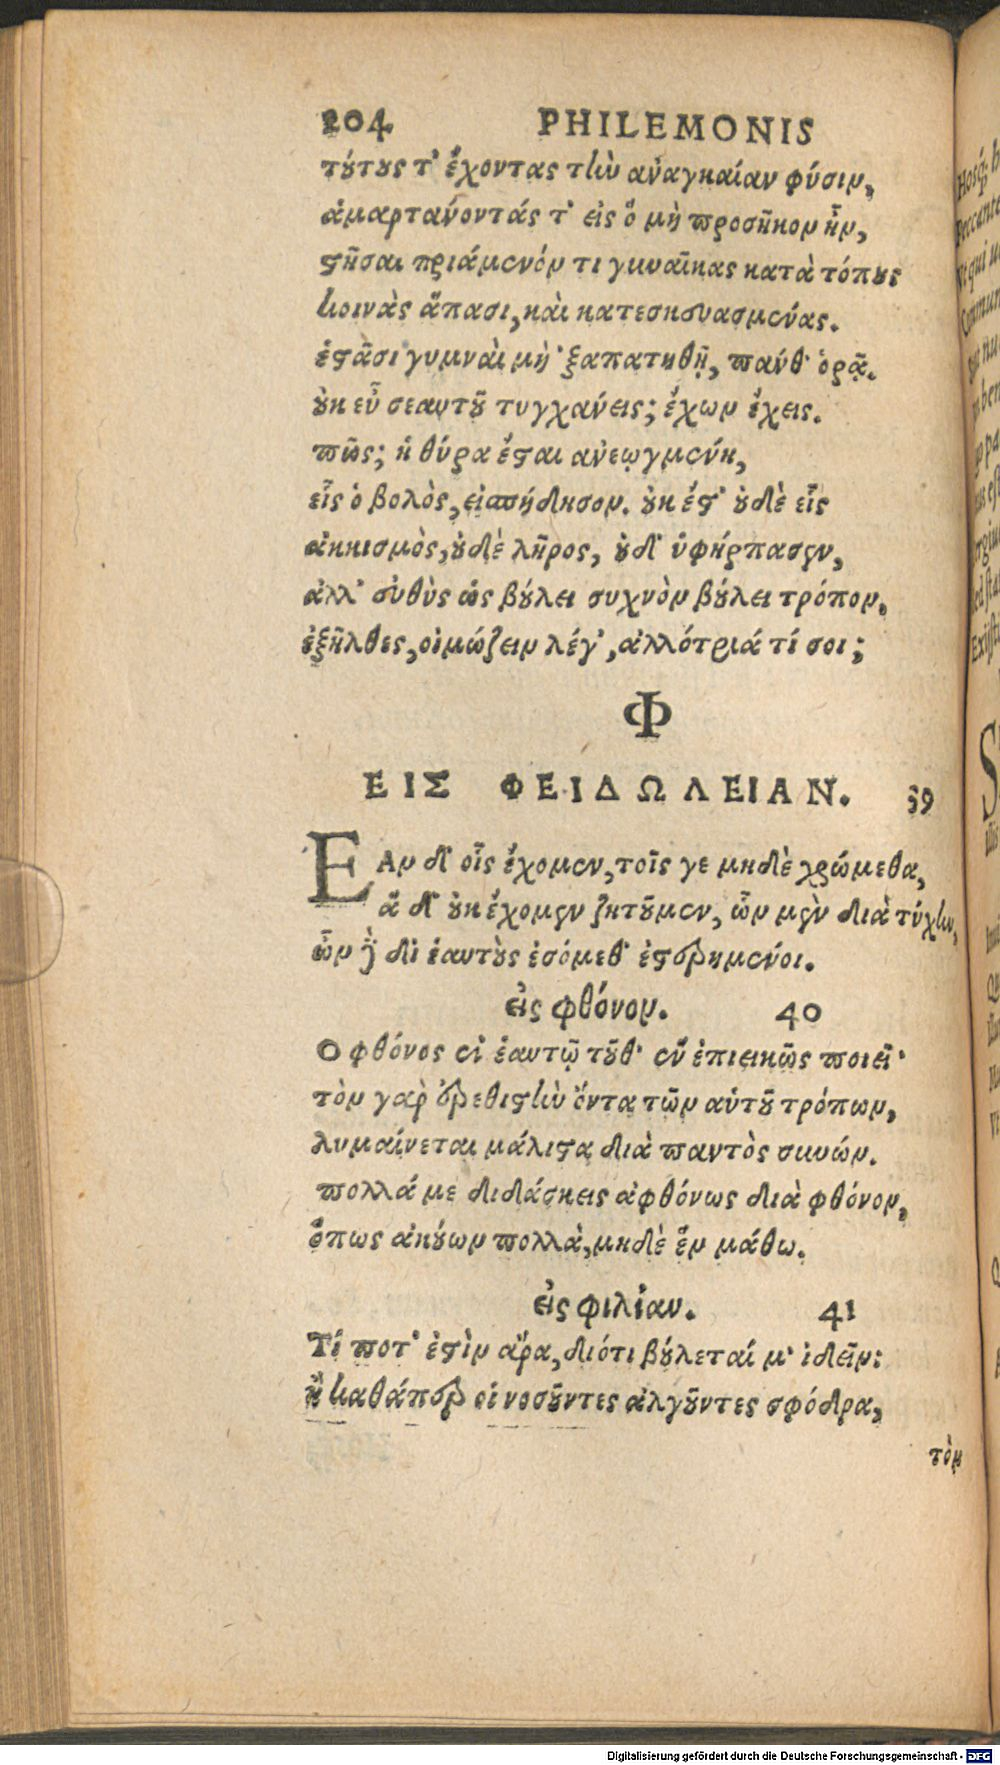 204 PHILEMONIS
τούτους τ' ἔχοντας τὴν ἀναγκαίαν φύσιν,
ἁμαρτάνοντάς τ' εἰς ὃ μὴ προσῆκον ἦν,
στῆσαι πριάμενόν τι γυναῖκας κατὰ τόπους
κοινὰς ἅπασι, καὶ κατεσκευασμένας.
ἑστᾶσι γυμναὶ μὴ 'ξαπατηθῇ, πάνθ' ὁρᾷ.
οὐκ εὖ σεαυτοῦ τυγχάνεις; ἔχων ἔχεις.
πῶς; ἡ θύρα ἔσται ἀνεῳγμένη,
εἷς ὁ βολὸς, εἰσπήδησον. οὐκ ἔστ' οὐδὲ εἷς
ἀκκισμὸς, οὐδὲ λῆρος, οὐδ' ὑφήρπασεν,
ἀλλ' εὐθὺς ὡς βούλει συχνὸν βούλει τρόπον.
ἐξῆλθες, οἰμώζειν λέγ', ἀλλότριά τί σοι;
Φ
ΕΙΣ ΦΕΙΔΩΛΕΙΑΝ. 39
ΕΑν δ' οἷς ἔχομεν, τοῖς γε μηδὲ χρώμεθα,
ἃ δ' οὐκ ἔχομεν ζητοῦμεν, ὧν μὲν διὰ τύχην,
ὧν δὲ δι' ἑαυτοὺς ἐσόμεθ' ἐστερημένοι.
εἰς φθόνον. 40
Ο φθόνος ἐν ἑαυτῷ τοῦθ' ἓν ἐπιεικῶς ποιεῖ·
τὸν γὰρ ἐρεθιστὴν ὄντα τῶν αὑτοῦ τρόπων,
λυμαίνεται μάλιστα διὰ παντὸς συνών.
πολλά με διδάσκεις ἀφθόνως διὰ φθόνον,
ὅπως ἀκούων πολλὰ, μηδὲ ἓν μάθω.
εἰς φιλίαν. 41
Τί ποτ' ἐστὶν ἄρα, διότι βούλεταί μ' ἰδεῖν:
ἢ καθάπερ οἱ νοσοῦντες ἀλγοῦντες σφόδρα,
τὸν
Digitalisierung gefördert durch die Deutsche Forschungsgemeinschaft - DFG